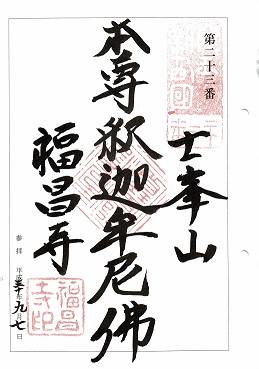 第二十三番
士峯山
本尊釈迦牟尼佛
福昌寺
参拝 平成三十年九月七日
福昌
寺印